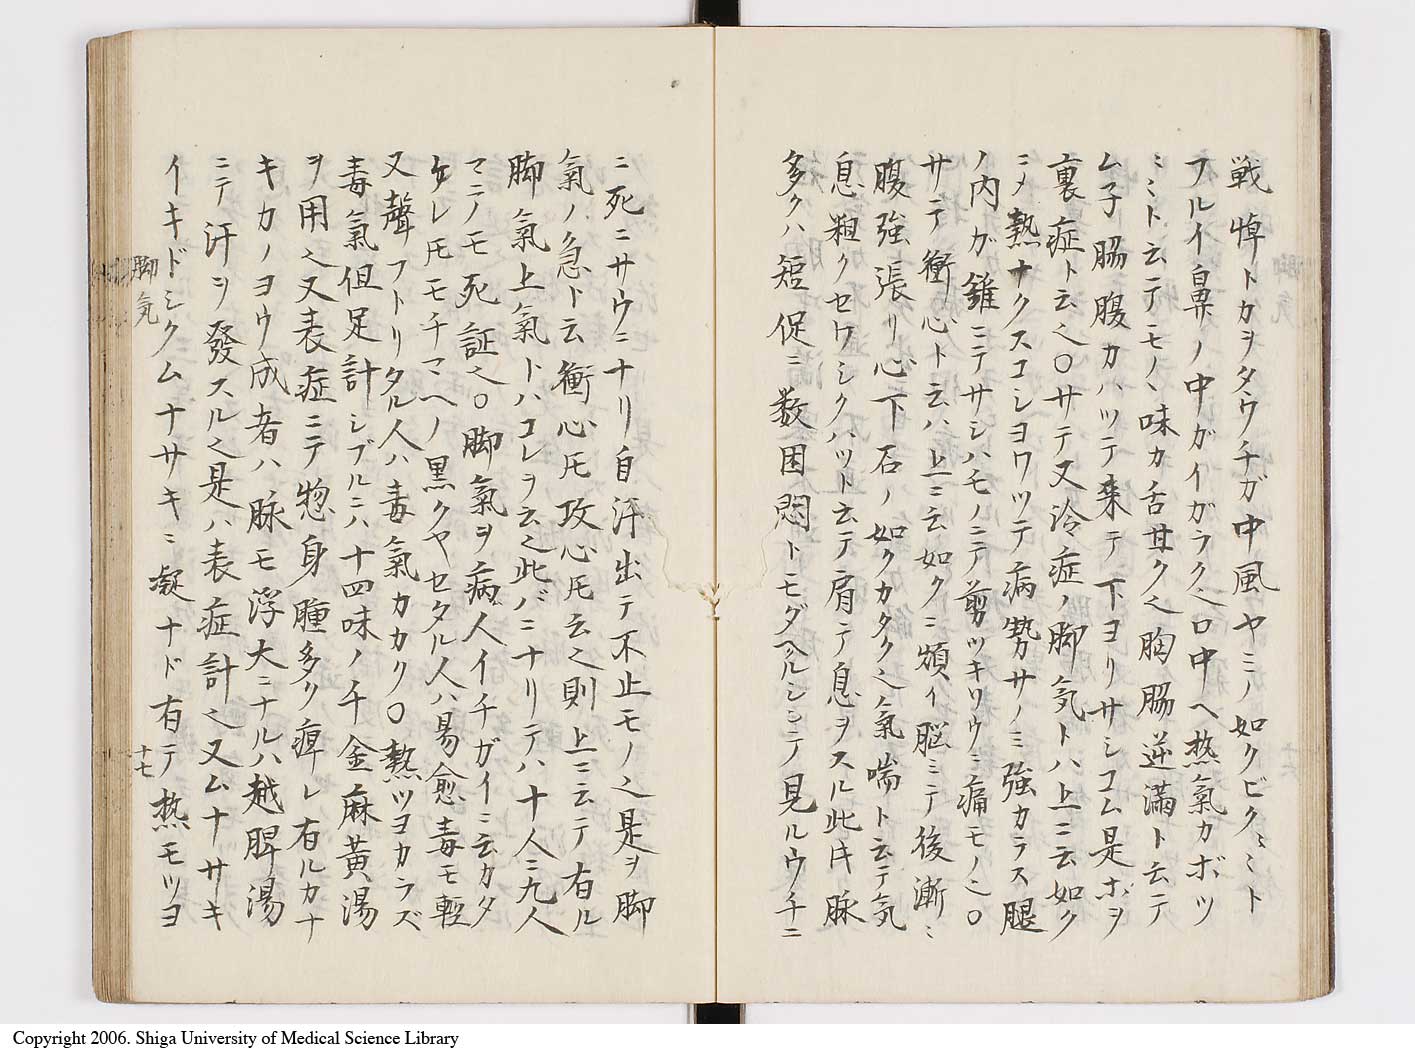 戦悼トカヲタウチガ中風ヤミノ如クビクヽミト
フルイ鼻ノ中ガイガラク乄口中ヘ熱氣カボツ
ミミト云テモノヽ味カ舌甘ク乄胸脇逆滿ト云テ
ム子脇腹カハツテ来テ下ヨリサシコム是ホヲ
裏症ト云之〇サテ又冷症ノ脚気トハ上ニ云如ク
ニノ熱ナクスコシヨワツテ病勢サノミ強カラス腿
ノ内ガ錐ニテサシハモノニテ剪ツキリウニ痛モノ之〇
サテ衝心ト云ハ上ニ云如クニ煩イ脳ミテ後漸ミ
腹強張リ心下石ノ如クカタク乄氣喘ト云テ気
息粗クセワシクハツト云テ肩テ息ヲスル此㐧脉
多クハ短促ニ数困悶トモダヘルシシテ見ルウチニ
ニ死ニサウニナリ自汗出テ不止モノ之是ヲ脚
氣ノ急ト云衝心𪜈攻心𪜈云之則上ニ云テ有ル
脚氣上氣トハコレヲ云之此バニナリテハ十人ニ九人
マテノモ死証之〇脚氣ヲ病人イチガイニ云カタ
ケレ𪜈モチマヘノ黒クヤセタル人ハ易愈毒モ輕
又聲フトリタル人ハ毒氣カカク〇熱ツヨカラズ
毒氣但足計シブルニハ十四味ノ千金麻黄湯
ヲ用之又表症ニテ惣身腫多ク痺レ有ルカナ
キカノヨウ成者ハ脉モ浮大ニナルハ越脾湯
ニテ汗ヲ發スル之是ハ表症計之又ムナサキ
イキドシクムナサキニ凝ナド有テ熱モツヨ
脚気
十七
Copyright 2006. Shiga University of Medical Science Library